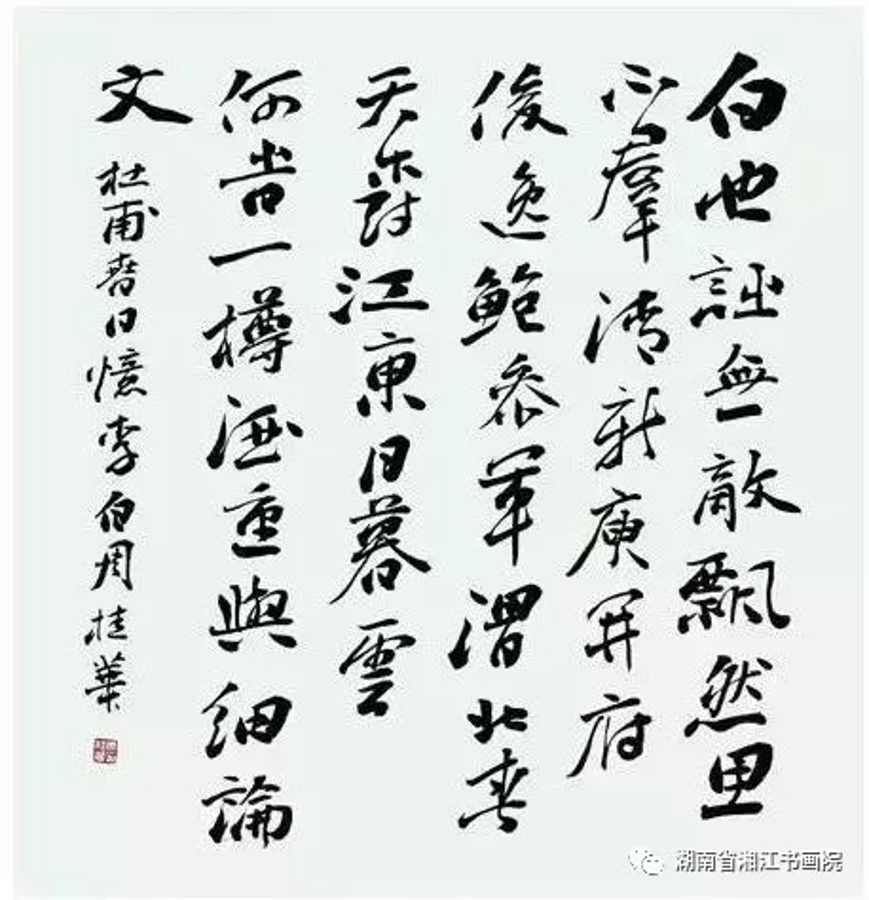 白也詩無敵飄然思
不羣清新庾開府
俊逸鮑參軍渭北春
天樹江東日暮雲
何旹一樽酒重與細論
文
杜甫春日憶李白周桂華
湖南省湘江书画院